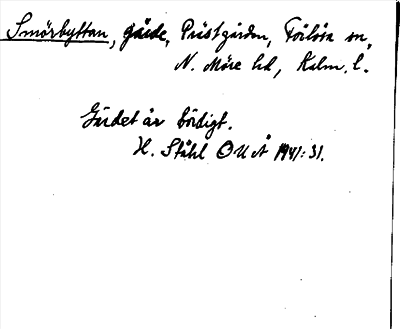 Smörbyttan, gärde, Prästgården, Förlösa sn,
N. Möre hd, Kalm. l.
Gärdet är bördigt.
H. Ståhl OUÅ 1941:31.